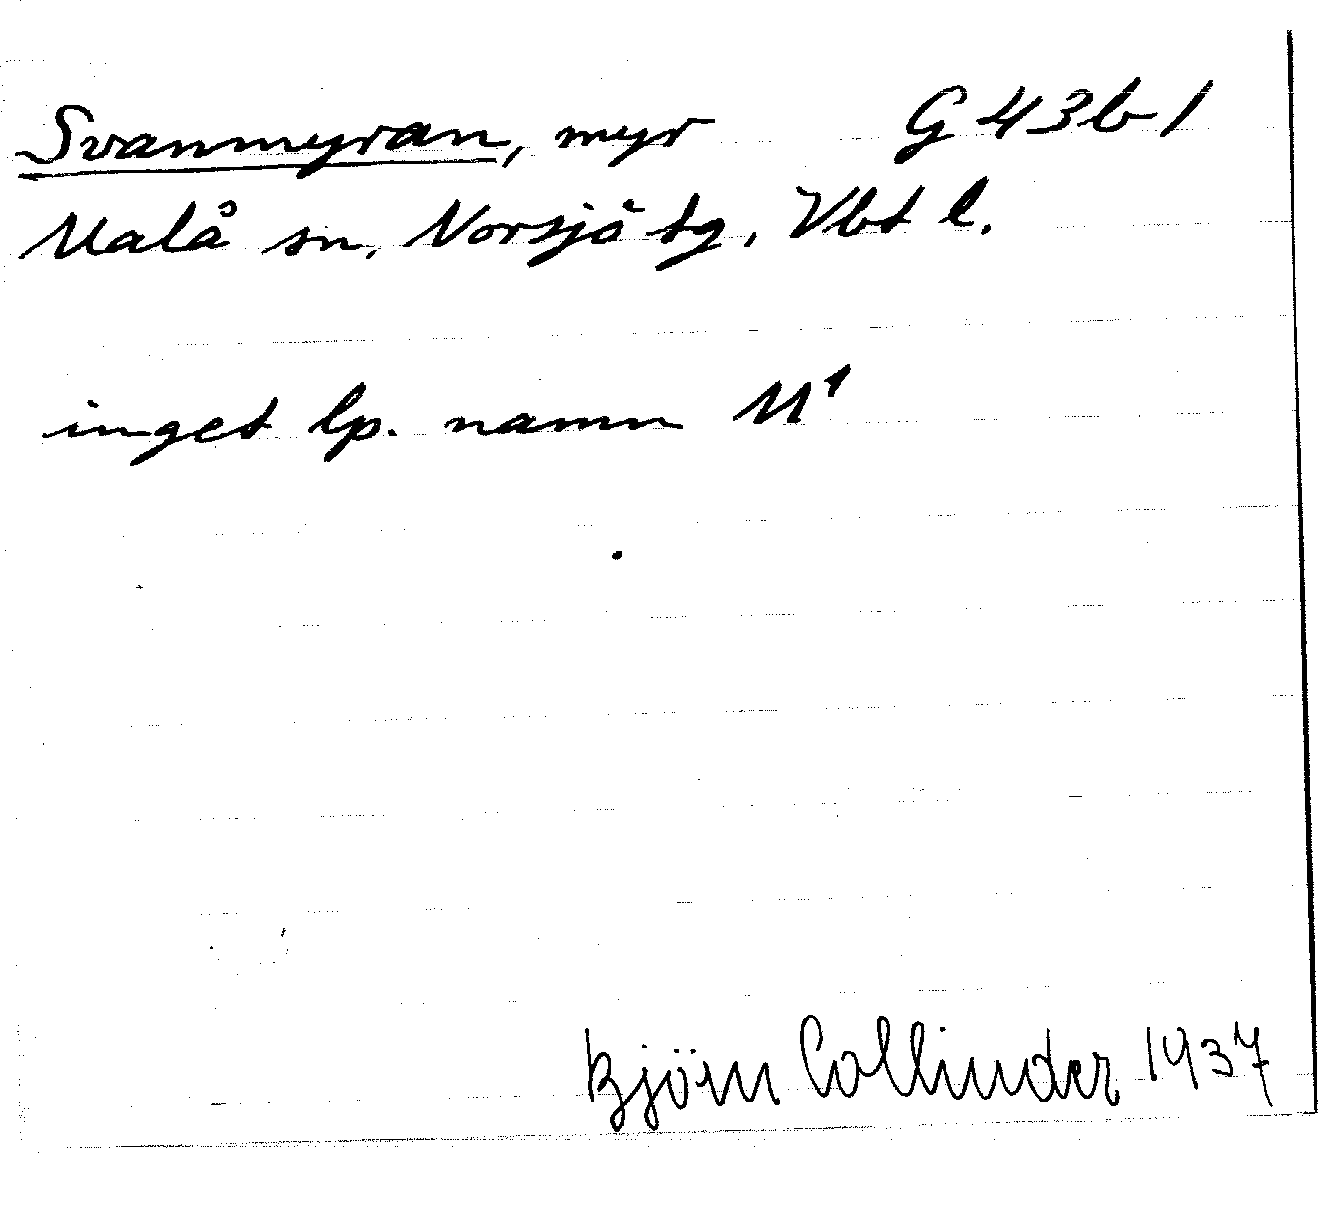 Svanmyran, myr G 43b 1
Malå sn, Norsjö tg, Vbt l.
inget lp. namn M¹
Björn Collinder 1937